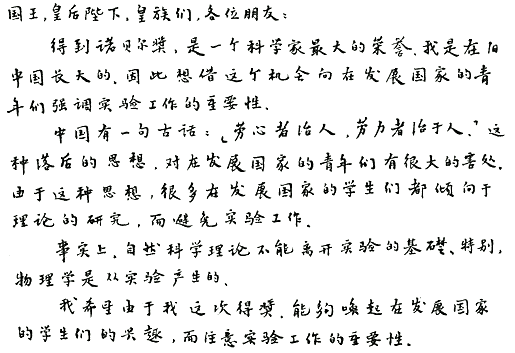 国王,皇后陛下,皇族们,各位朋友:
得到诺贝尔奖,是一个科学家最大的荣誉.我是在旧
中国长大的,因此想借这个机会向在发展国家的青
年们强调实验工作的重要性.
中国有一句古话:“劳心者治人,劳力者治于人.”这
种落后的思想,对在发展国家的青年们有很大的害处.
由于这种思想,很多在发展国家的学生们都倾向于
理论的研究,而避免实验工作.
事实上,自然科学理论不能离开实验的基础,特别,
物理学是从实验产生的.
我希望由于我这次得奖,能够唤起在发展国家
的学生们的兴趣,而注意实验工作的重要性.